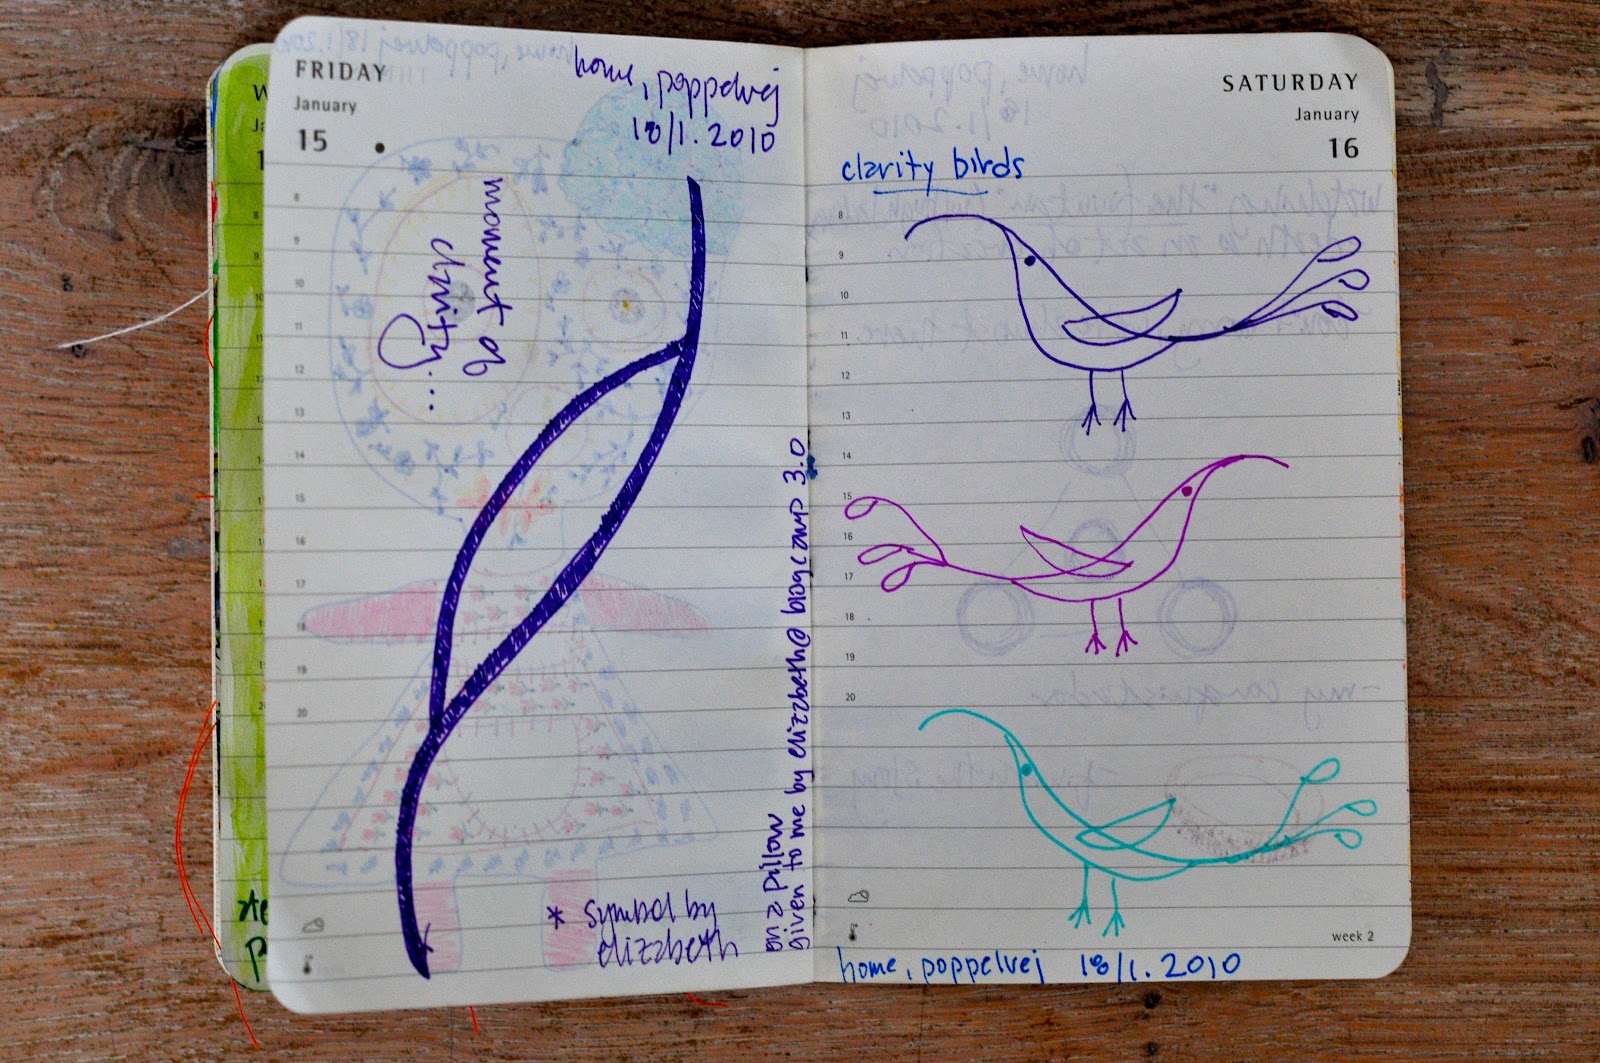 FRIDAY
January
15
home, poppelvej
18/1. 2010
moment of
clarity...
8
9
10
11
12
13
14
15
16
17
18
19
20
* symbol by
elizabeth
on a pillow
given to me by elizabeth@ blogcamp 3.0
SATURDAY
January
16
clarity birds
8
9
10
11
12
13
14
15
16
17
18
19
20
week 2
home, poppelvej 18/1. 2010